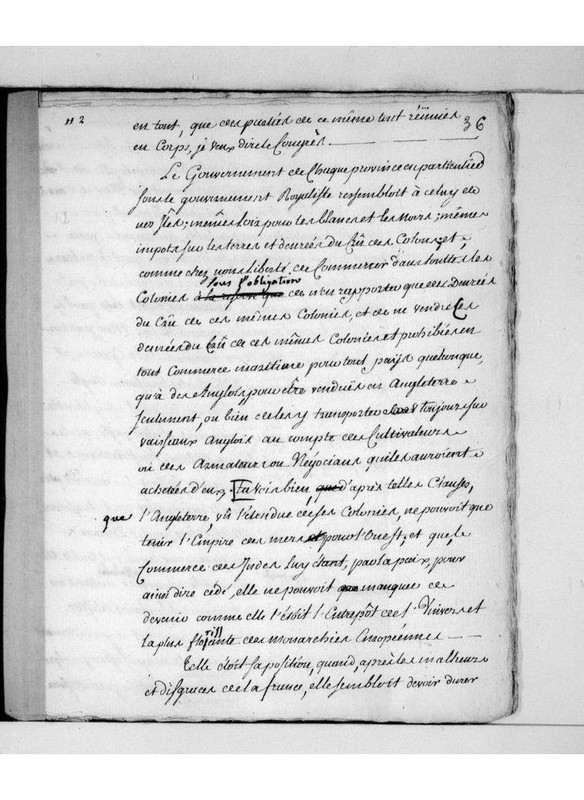 112
36
en tout, que ces parties de ce même tout réünies
en Corps, je veux dire le Congrès.
Le Gouvernment de Chaque province en particulier
sous le gouvernement Royaliste ressembloit à celuy de
nos Îles; mêmes Loix pour les blancs et les Noirs; mêmes
impots sur les terres et denrées du Crû des Colons, et,
comme chez nous liberté de Commercer dans touttes les
sous l'obligation
Colonies à la reserve que de n'en rapporter que des Denrées
du Crû de ces mêmes Colonies, et de ne vendre les
denrées du Crû de ces mêmes Colonies et prohibées en
tout Commerce maritime pour tout païs quelconque,
qu'à des Anglois, pour être vendues en Angleterre
seulement, ou bien de les y transporter toujours sur
vaisseaux Anglois au compte des Cultivateurs
ou des Armateurs ou Négocians qui les auroient
achetées d'eux. La vois bien que d'après telles Clauses,
que l'Angleterre, vû l'étendue de ses Colonies, ne pouvoit que
tenir l'Empire des mers et pour l'Ouest, et que, le
Commerce des Indes luy étant, par la paix, pour
ainsi dire cédé, elle ne pouvoit que manquer de
devenir comme elle l'étoit l'Entrepôt de l'Univers et
rill
la plus florante des monarchies Européennes
Telle étoit sa position, quand, après les malheurs
et disgraces de la france, elle sembloit devoir durer